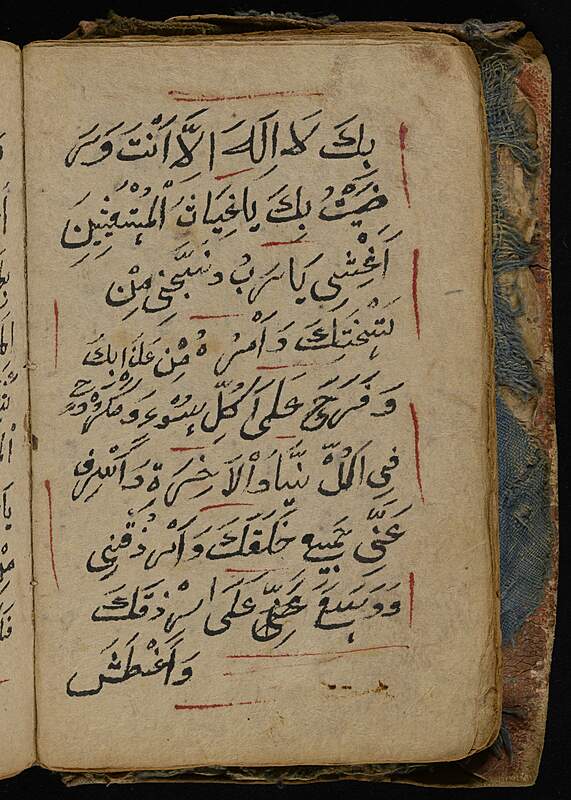 بِكَ لَا اِلَهَ اِلَّا اَنْتَ وَرَ
ضَيْتُ بِكَ يَاغِيَاثَ الْمُسْتَغِيْثِيْنَ
اَغِثْنِي يَارَبُ وَنَجِّنِي مِنْ
وَاَمْرُهُ مِنْ عَذَابِكَ
وَفَرِّجْ عَلَى كُلِّ سُوْءٍ وَمَكْرُوْهٍ
فِي كُلِّ دُنْيَا وَالْاَخِرَةِ
عَنِّي جَمِيْعِ خَلْقِكَ وَارْزُقْنِي
وَوَسِعْ عَنِّي عَلَى رِزْقِكَ
وَاَعْطِشَ